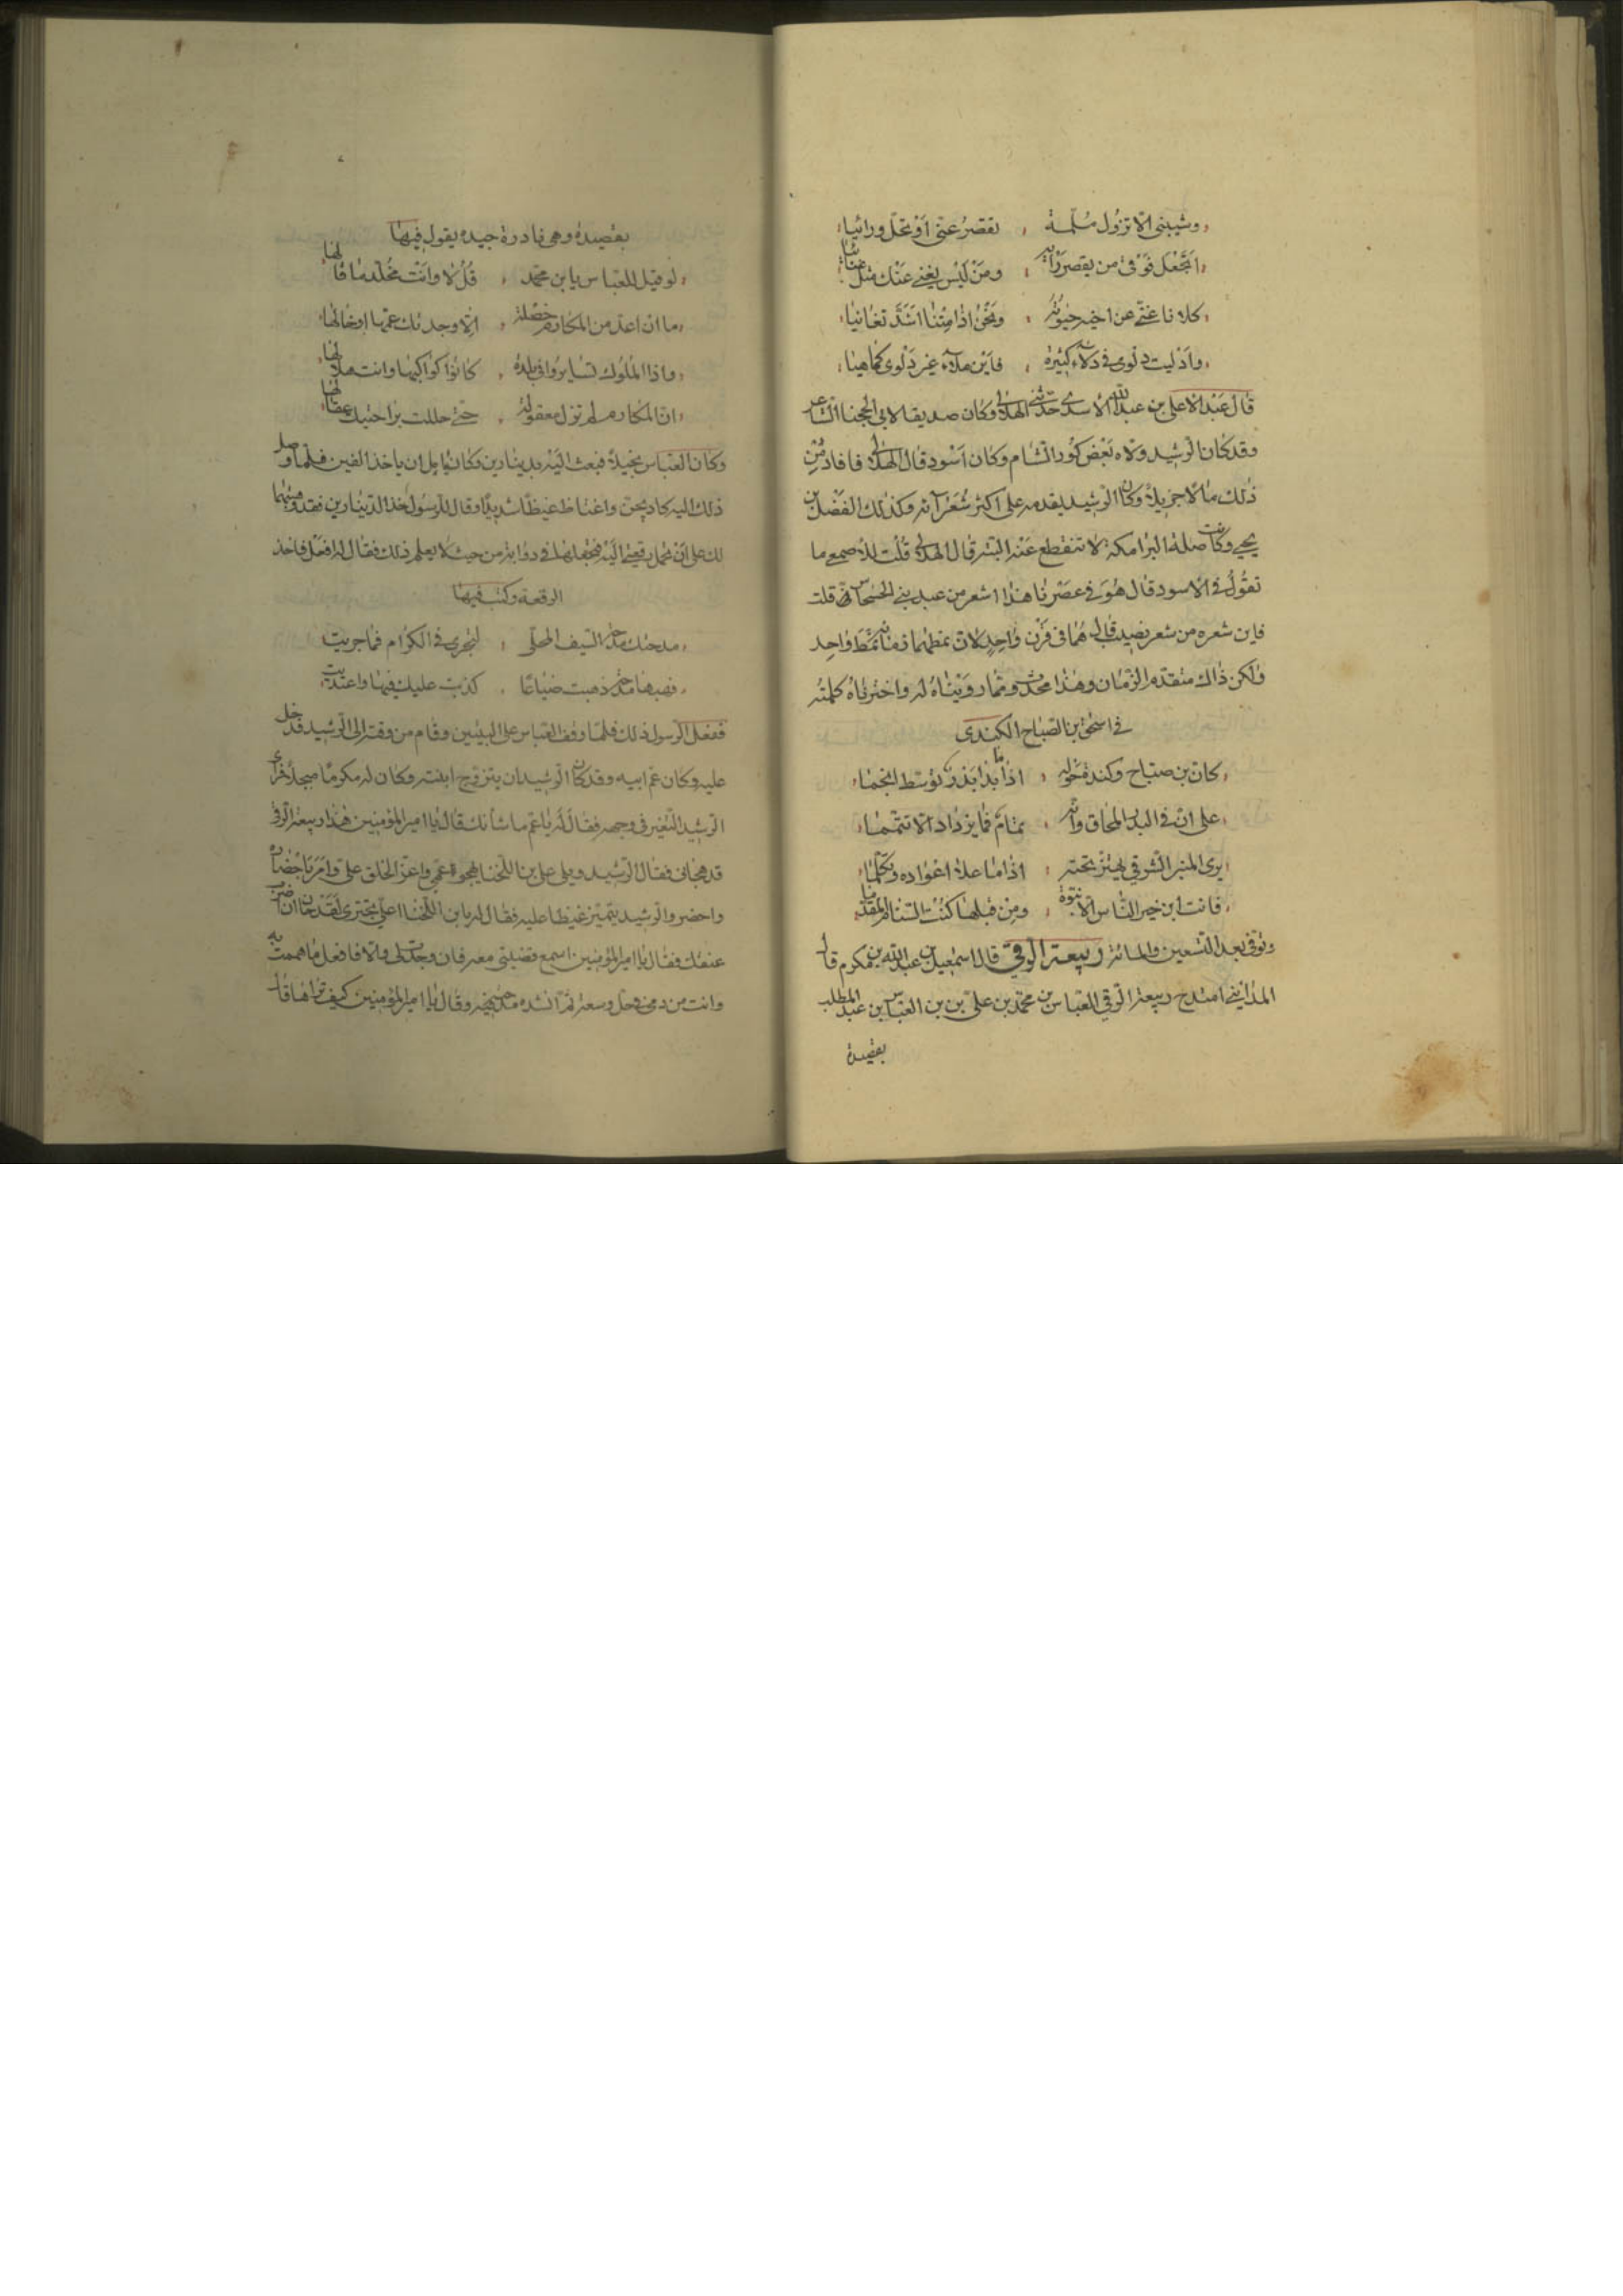 وشيبنى الا تزول ملمة ، تقصر عنى او تحل ورائيا
اتجعل فوقى من يقصر رأيه ، ومن ليس يغنى عنك مثل غنائيا
كلانا غنى عن اخيه حيوته ، ونحن اذا متنا اشد تغانيا
وادليت دلوى فى دلاء كثيرة ، فابن ملاء غير دلوى كما هيا
قال عبد الاعلى بن عبد الله الاسدى حدثنى الهذلى وكان صديقا لابى الحجنا الشاعر
وقد كان الرشيد ولاه بعض كور الشام وكان اسود قال الهذلى فافاد من
ذلك مالا جزيلا وكان الرشيد يقدمه على اكثر شعرآئه وكذلك الفضل بن
يحيى وكانت صلة البرامكة لا تنقطع عنه البته قال الهذلى قلت للاصمعى ما
تقول فى الاسود قال هو فى عصرنا هذا اشعر من عبد بنى الحسحاس فى قلت
فاين شعره من شعر نصيب قال هما فى قرن واحد لان نمطهما نمط واحد
ولكن ذاك متقدم الزمان وهذا محدث ومما رويناه له واخترناه كلمته
فى اسحق بن الصباح الكندى
كان بن صباح وكندة حوله ، اذا ما بدا بدر توسط انجما
على ان فى البدر المحاق وانه ، تمام فما يزداد الا تتمما
يرى المنبر الشرقى يهتز تحته ، اذا ما علا اعواده وتكلما
فانت ابن خير الناس الا نبوة ، ومن قبلها كنت السنام المقدما
وتوفى بعد التسعين والمائة ربيعة الرقى قال اسمعيل بن عبد الله بن مكرم قال
المدائنى امتدح ربيعة الرقى العباس بن محمد بن على بن بن العباس بن عبد المطلب
بقصيدة
بقصيده وهى نادرة جيده يقول فيها
لو قيل للعباس يا بن محمد ، قل لا وانت مخلد ما قالها
ما ان اعد من المكارم خصلة ، الا وجدتك عمها او خالها
واذا الملوك تسايروا فى بلده ، كانوا كواكبها وانت هلالها
ان المكارم لم تزل معقولة ، حتى حللت براحتيك عقالها
وكان العباس بخيلا فبعث اليه بدينارين وكان يامل ان ياخذ الفين فلما وصل
ذلك اليه كاد يجن واغتاظ غيظا شديدا وقال للرسول خذ الدينارين فقد وهبتهما
لك على ان تحمل رقعتى اليه فتجعلها فى دواته من حيث لا يعلم ذلك فقال له افعل فاخذ
الرقعة وكتب فيها
مدحتك مدحة السيف المحلى ، لتجرى فى الكرام فما جريت
فهبها مدحة ذهبت ضياعا ، كذبت عليك فيها واعتديت
ففعل الرسول ذلك فلما وقف العباس على البيتين وقام من وقته الى الرشيد فدخل
عليه وكان عم ابيه وقد كان الرشيد ان يتزوج ابنته وكان له مكرما مبجلا فرأى
الرشيد التغير فى وجهه فقال له يا عم ما شانك قال يا امير المؤمنين هذا ربيعة الرقى
قد هجانى فقال الرشيد ويلى على بن اللخنا يهجو عمى واعز الخلق على وامر باحضاره
واحضر والرشيد يتميز غيظا عليه فقال له يا بن اللخنا اعلى تجترى لقد حان ان اضرب
عنقك فقال يا امير المؤمنين اسمع قصيلتى معه فان وجدت لى والا فافعل ما هممت به
وانت من دمى فى حل وسعة ثم انشده مدحته فيه وقال يا امير المؤمنين كيف تراها قال